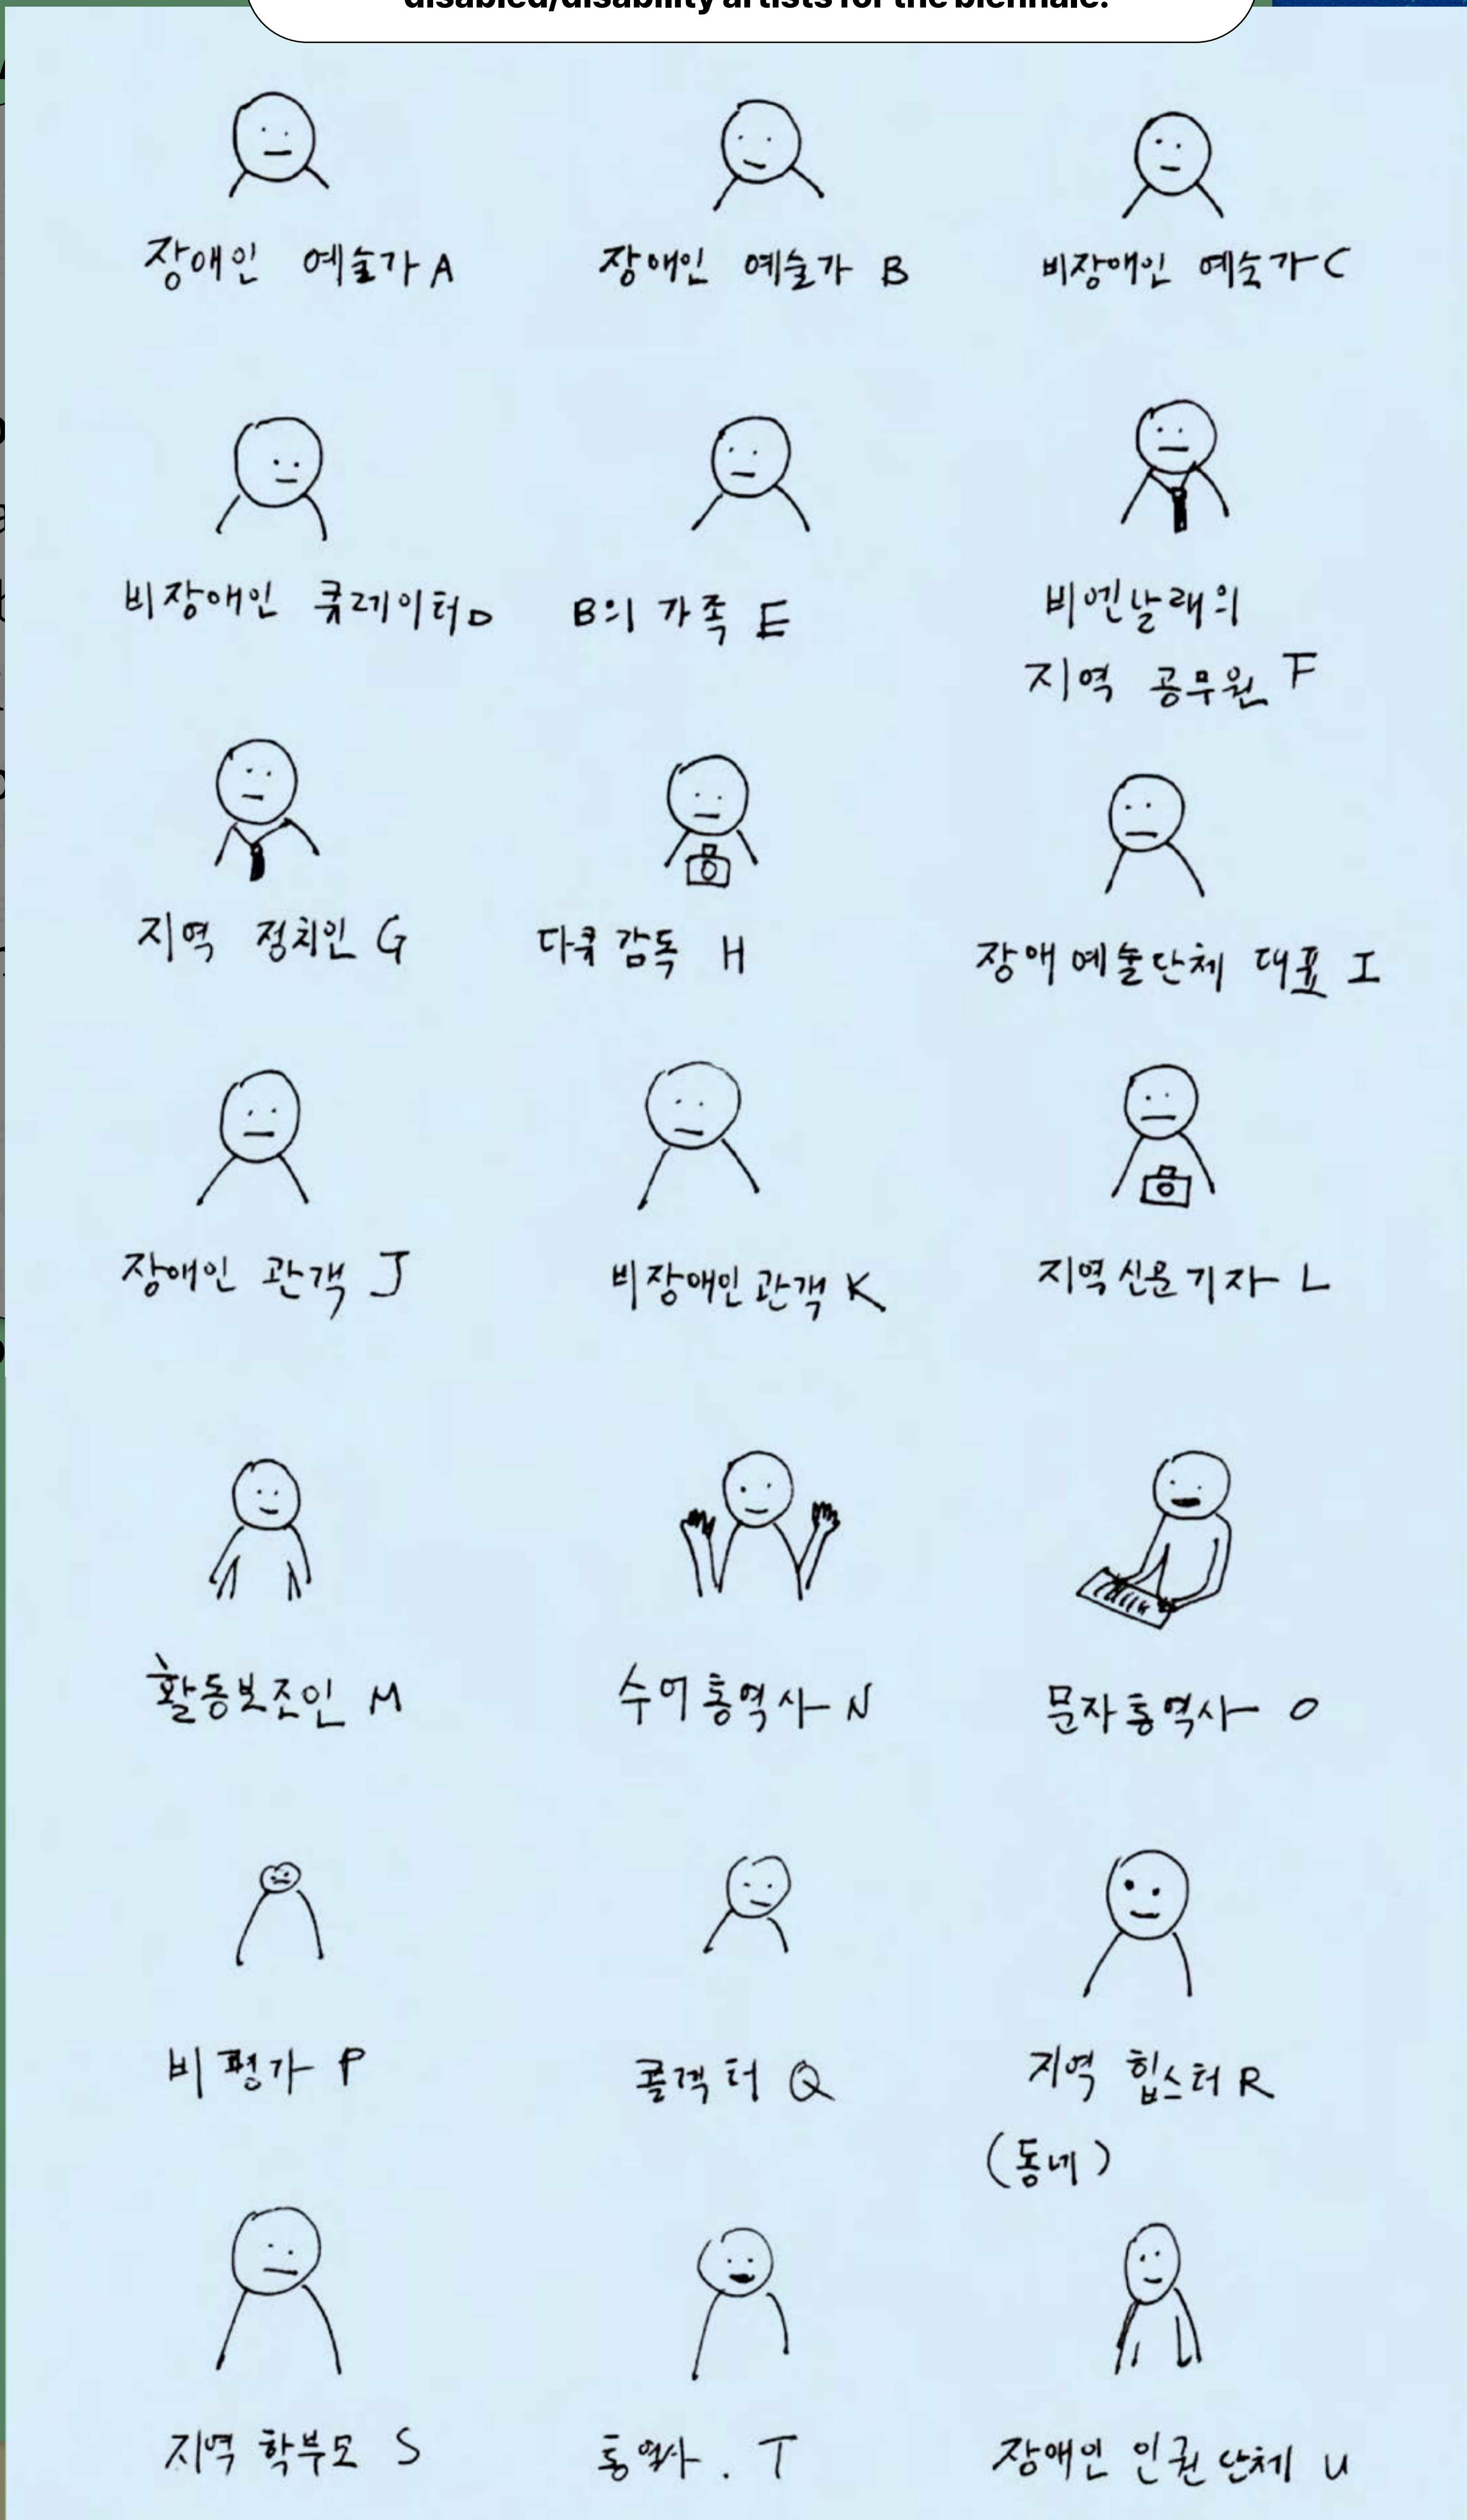 disabled/disability artists for the biennale.
장애인 예술가 A
장애인 예술가 B
비장애인 예술가 C
비장애인 큐레이터 D
B의 가족 E
비엔날래의
지역 공무원 F
지역 정치인 G
다큐감독 H
장애예술단체 대표 I
장애인 관객 J
비장애인 관객 K
지역신문기자 L
활동보조인 M
수어통역사 N
문자통역사 O
비평가 P
콜렉터 Q
지역 힙스터 R
(동네)
지역 학부모 S
통역사. T
장애인 인권단체 U